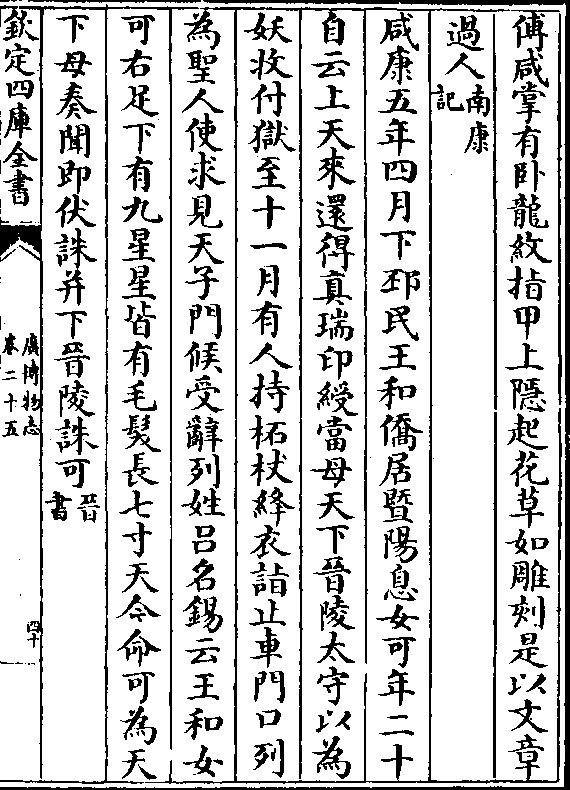 傅咸掌有卧龍紋指甲上隱起花草如雕刻是以文章
過人南康
記
咸康五年四月下邳民王和僑居暨陽息女可年二十
自云上天來還得真瑞印綬當母天下晉陵太守以為
妖收付獄至十一月有人持柘杖絳衣詣止車門口列
為聖人使求見天子門候受辭列姓吕名錫云王和女
可右足下有九星星皆有毛髪長七寸天令命可為天
下母奏聞即伏誅并下晉陵誅可晉
書
欽定四庫全書
廣博物志
卷二十五
四十